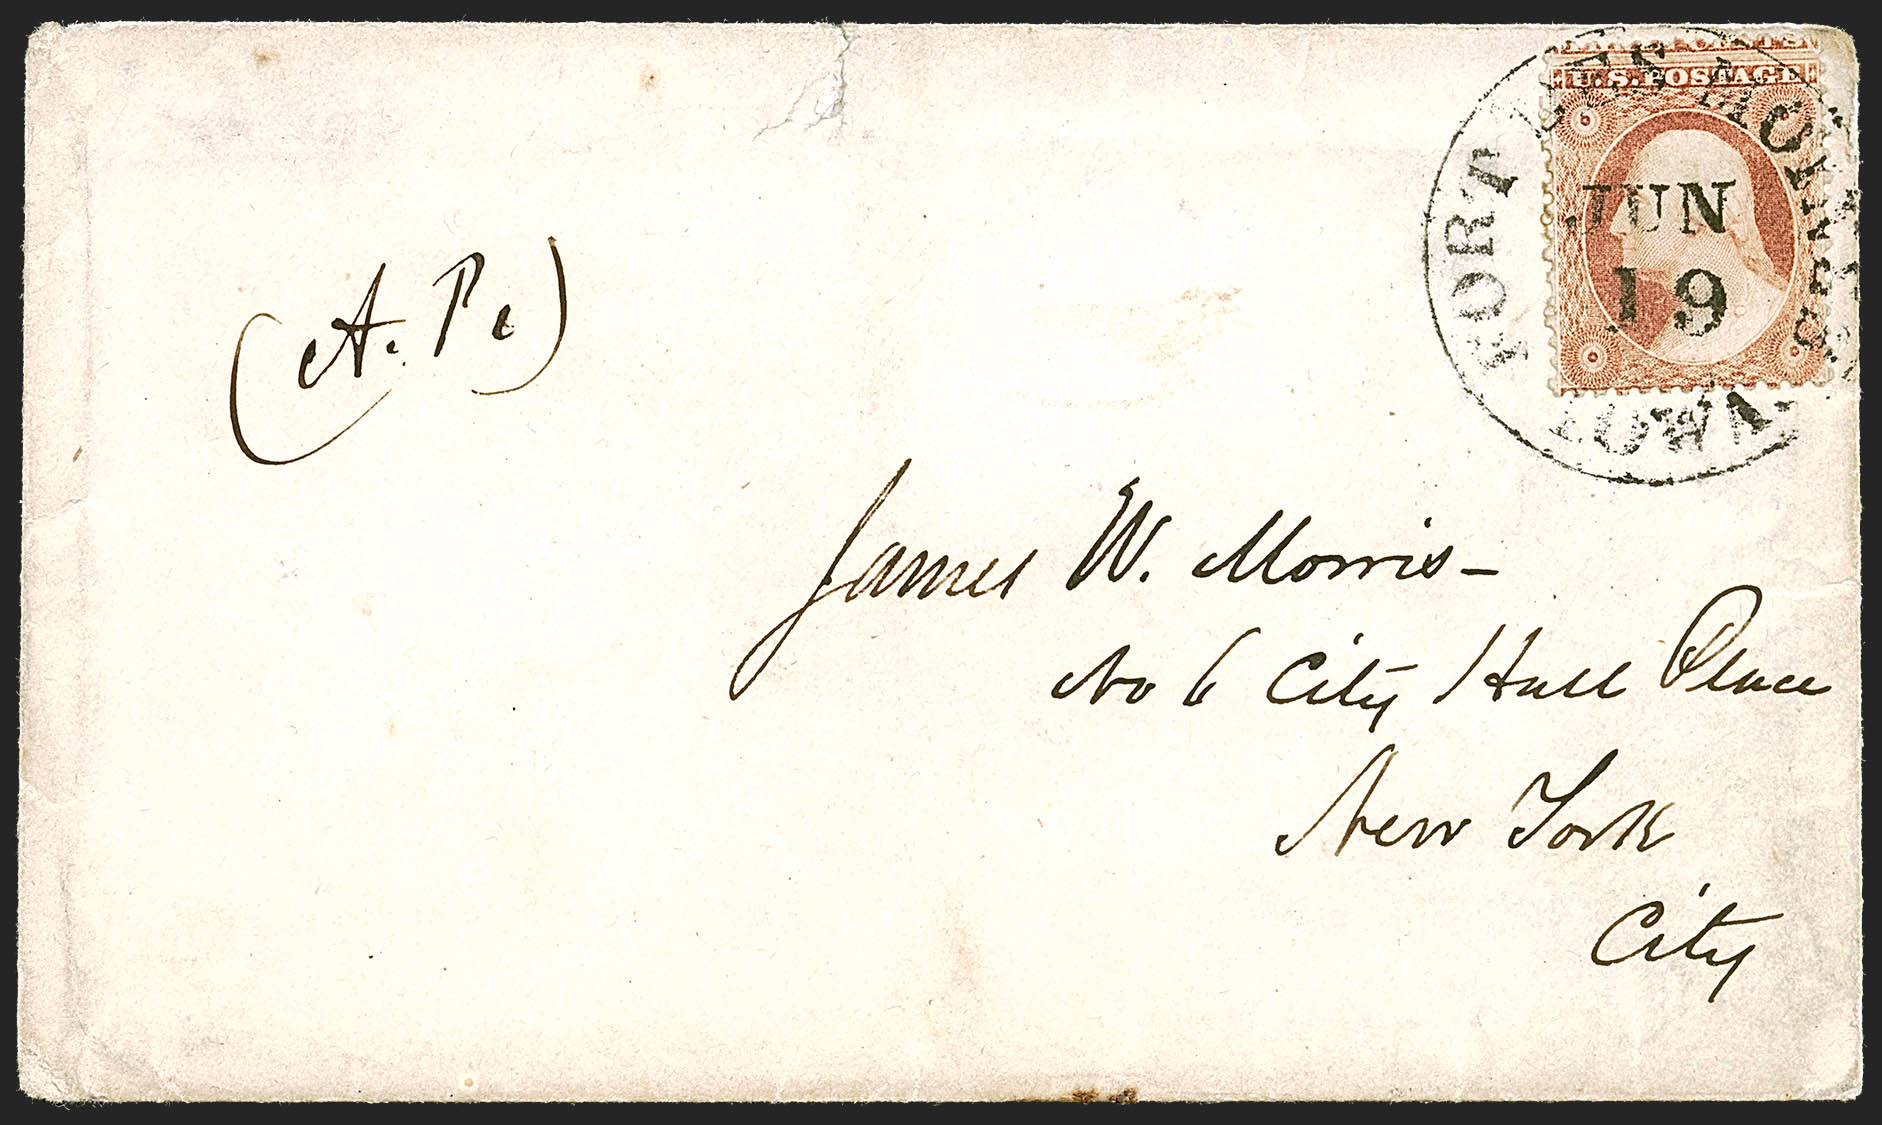 U.S. POSTAGE
FORT DES MOINES
JUN
19
IOWA.
(A. Pc)
James W. Morris -
No 6 City Hall Place
New York
City